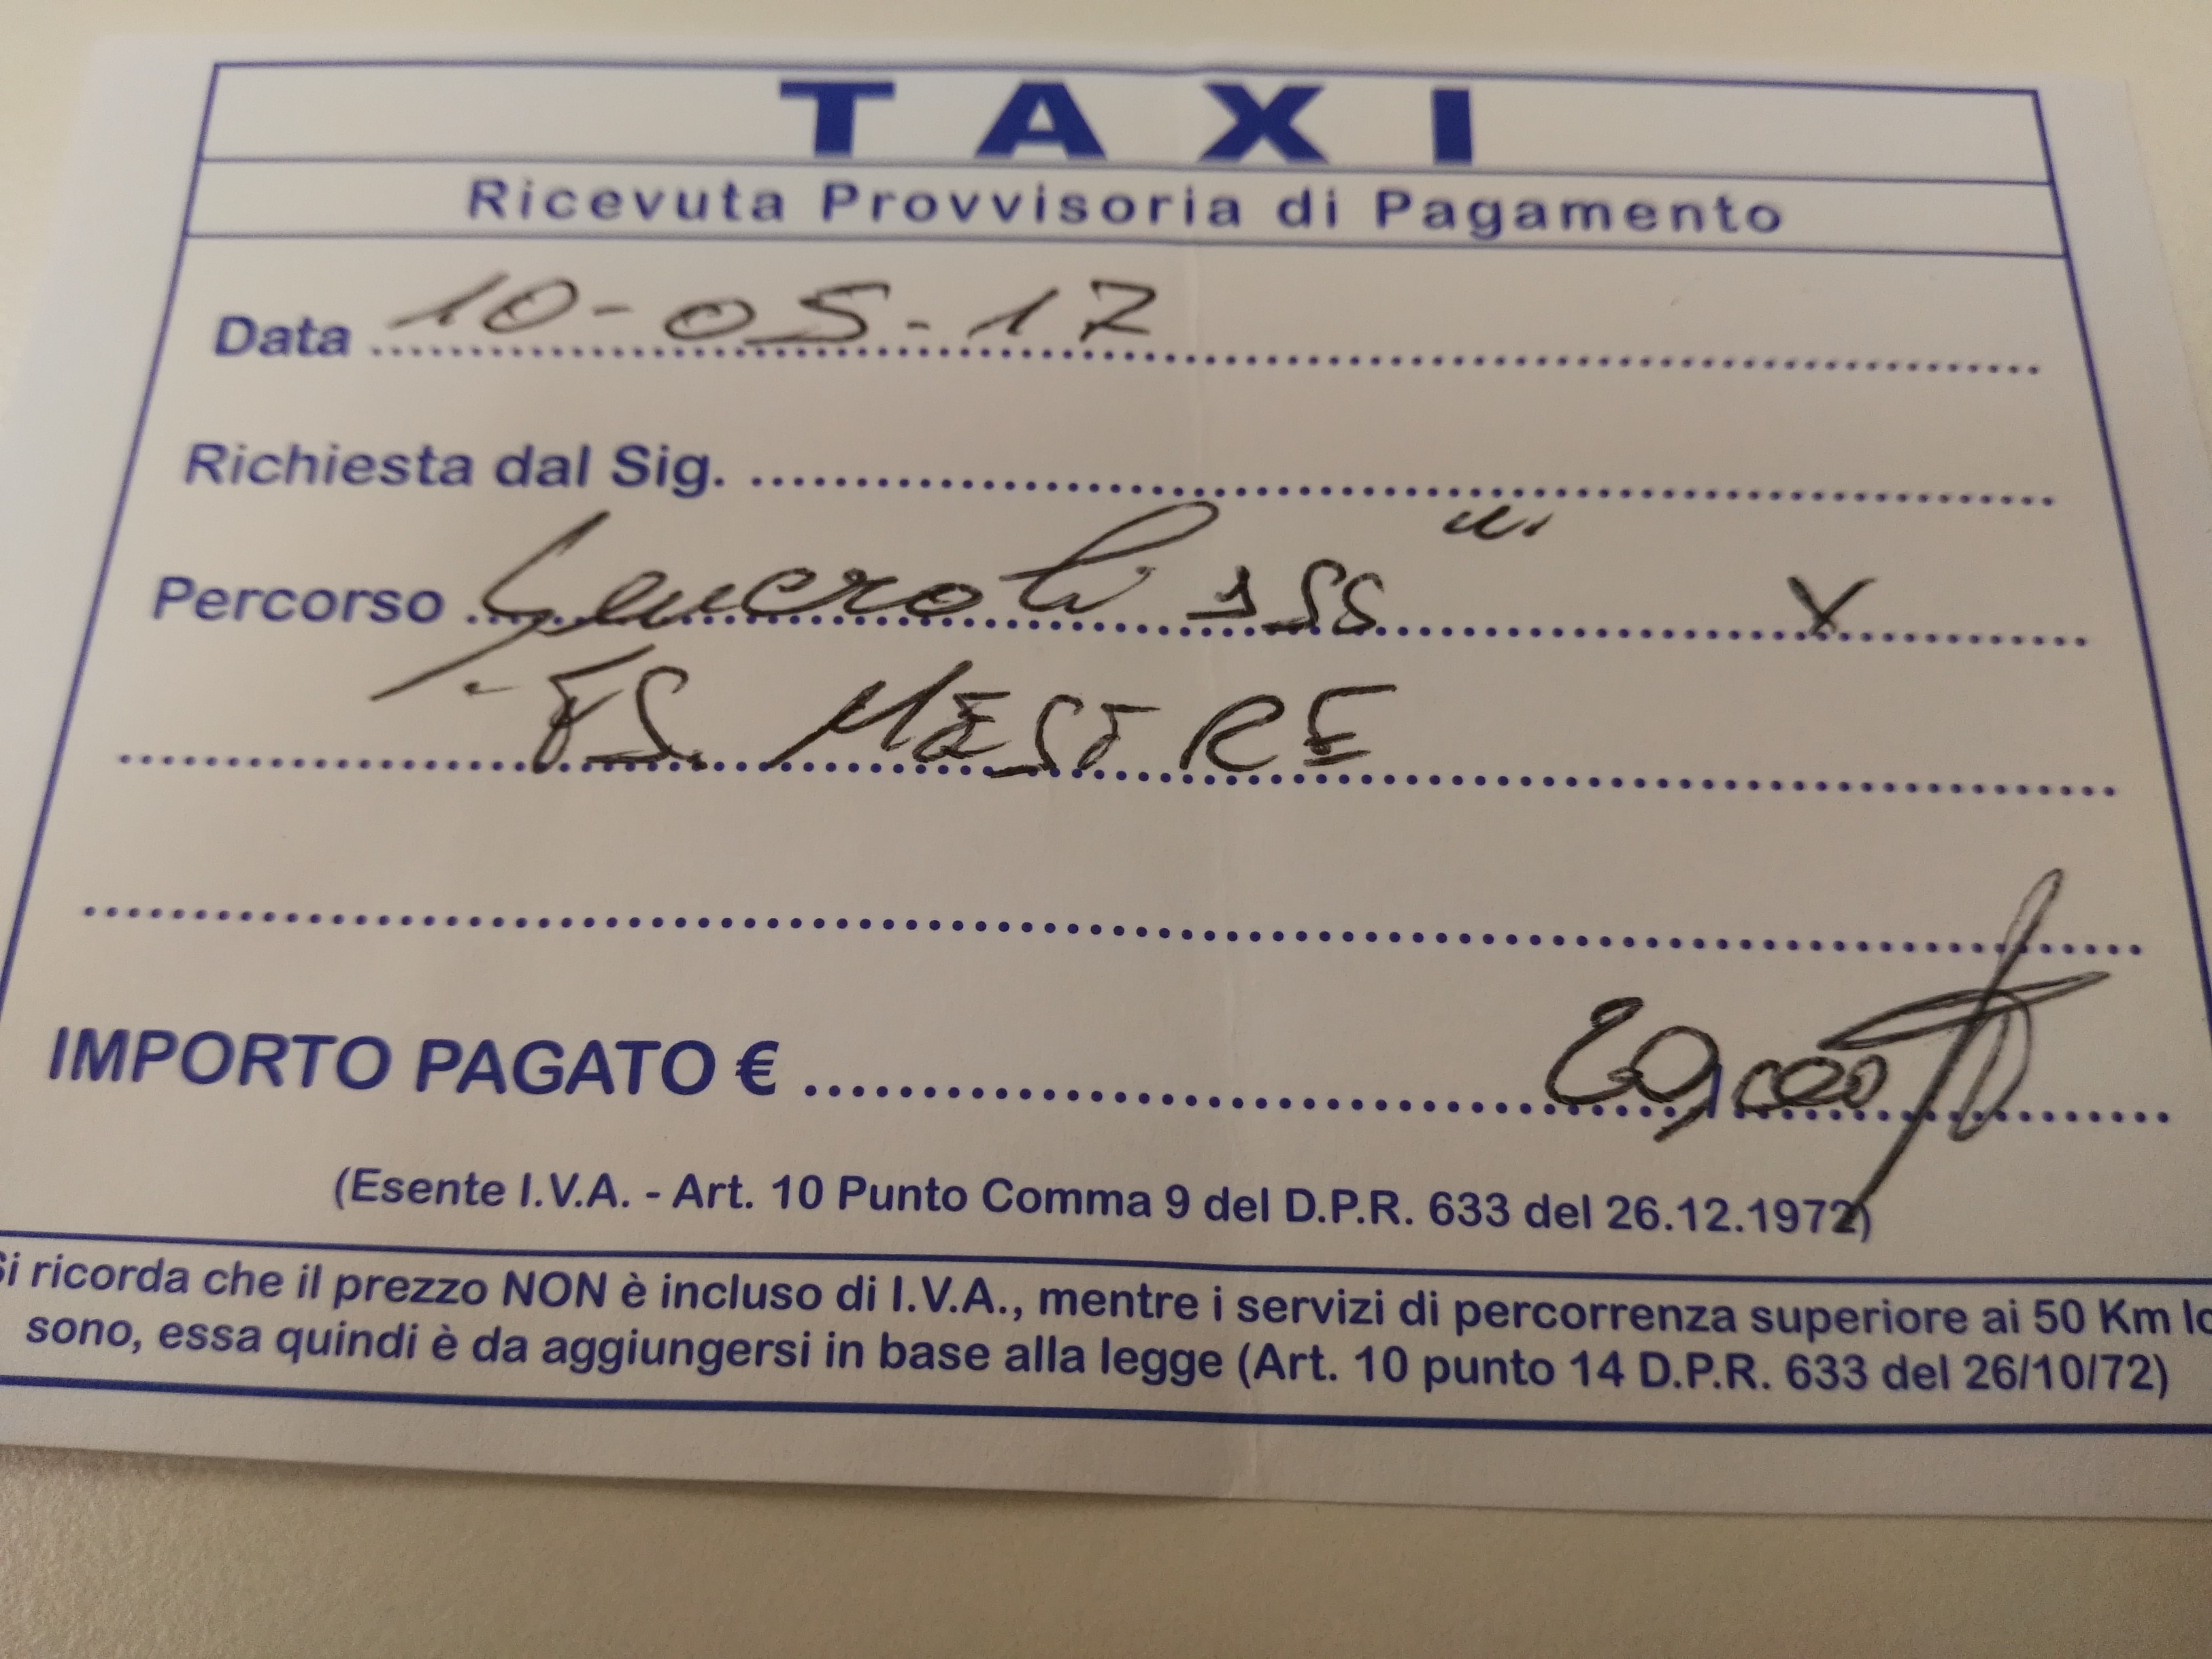 TAXI
Ricevuta Provvisoria di Pagamento
Data 10-05-17
Richiesta dal Sig.
Percorso Generali Ass ni X
FS. MESTRE
IMPORTO PAGATO € 20,00
(Esente I.V.A. - Art. 10 Punto Comma 9 del D.P.R. 633 del 26.12.1972)
Si ricorda che il prezzo NON è incluso di I.V.A., mentre i servizi di percorrenza superiore ai 50 Km lo
sono, essa quindi è da aggiungersi in base alla legge (Art. 10 punto 14 D.P.R. 633 del 26/10/72)